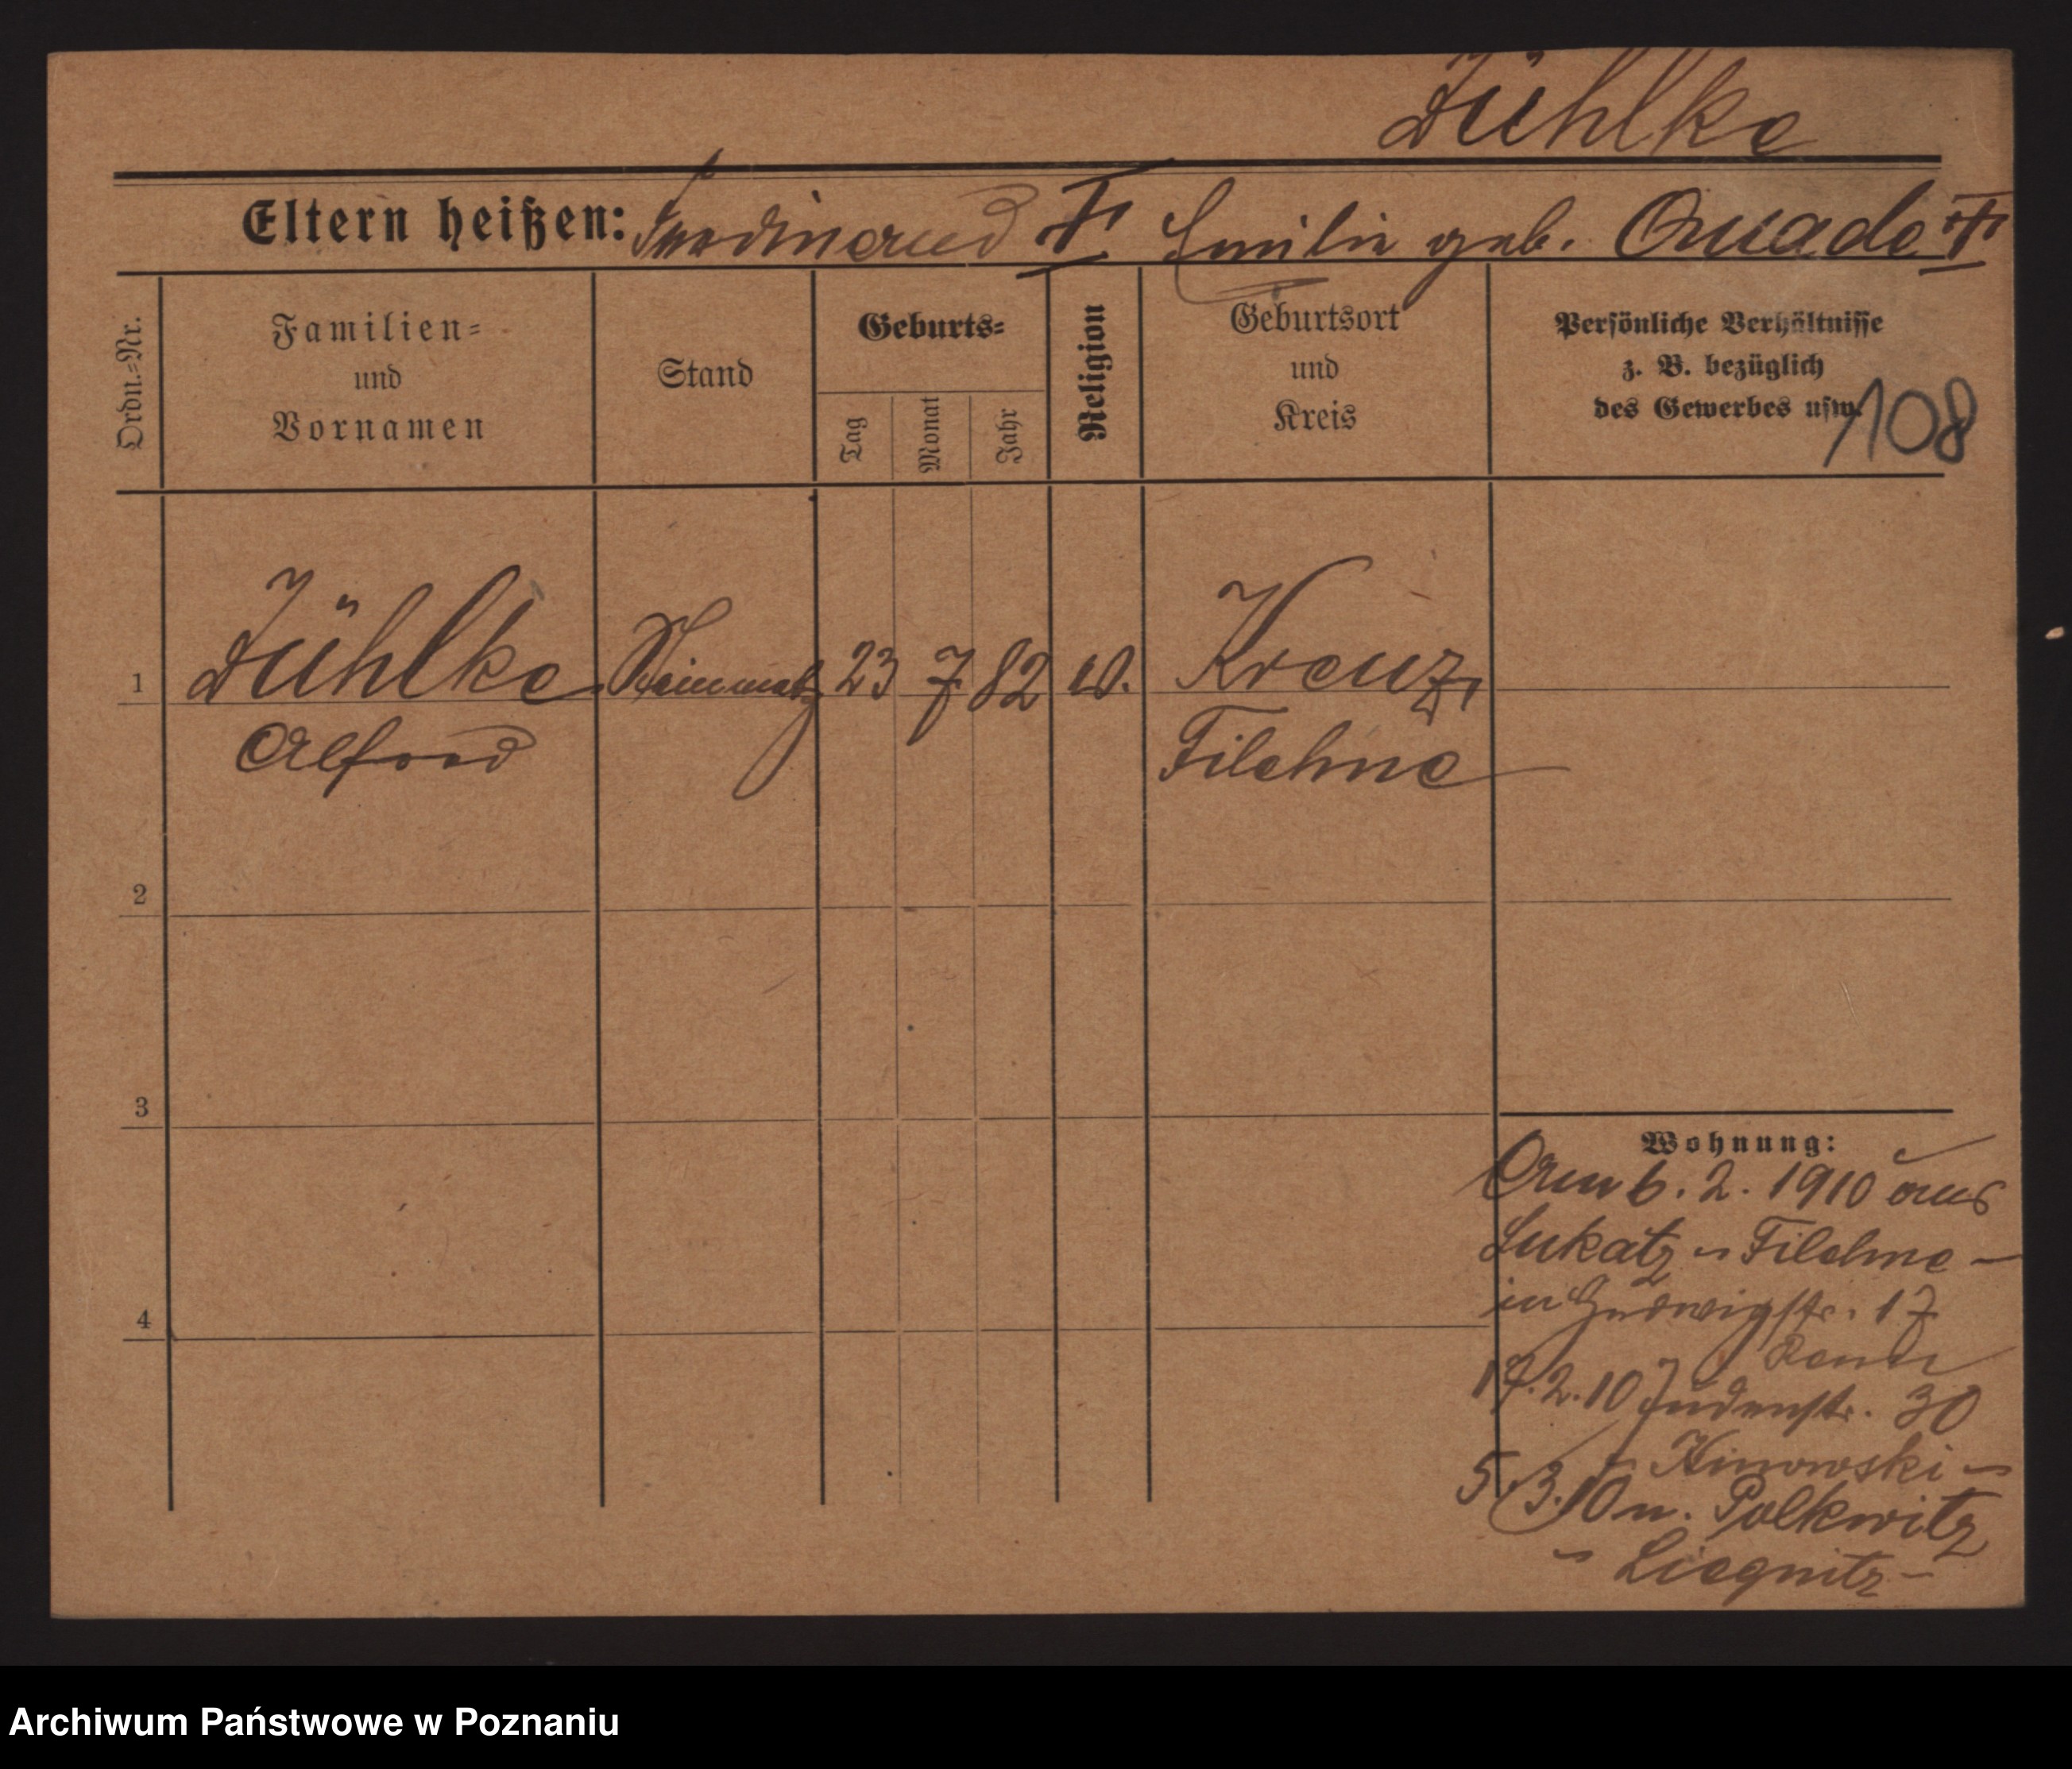 Zühlke
Eltern heißen: Ferdinand † Emilie geb. Quade †
Ordn.-Nr.
Familien-
und
Vornamen
Stand
Geburts-
Tag
Monat
Jahr
Religion
Geburtsort
und
Kreis
Persönliche Verhältnisse
z. B. bezüglich
des Gewerbes usw.
108
1 Zühlke 23 7 82 Kreuz,
Alfred Filehne
2
3
4
Wohnung:
6. 2. 1910 aus
Lukatz - Filehne -
in 17
17.2.10 Judenstr. 30
5.3.10 n. Polkwitz
- Liegnitz -
Archiwum Państwowe w Poznaniu